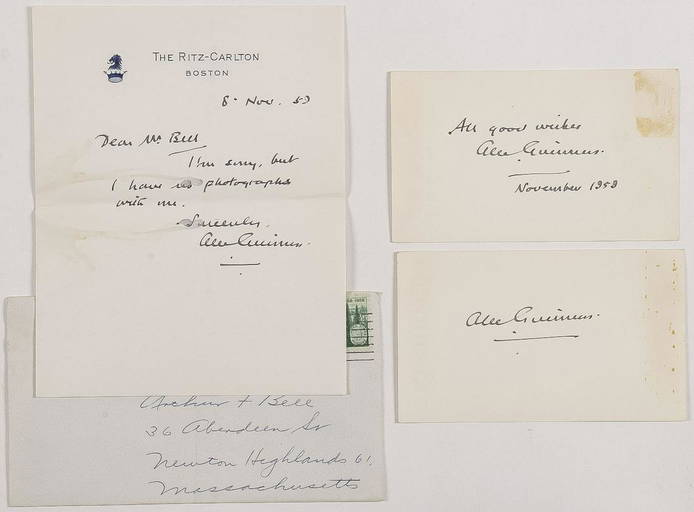 THE RITZ-CARLTON
BOSTON
8. Nov. 59
Dear Mr Bell
I'm sorry, but
I have no photographs
with me.
Sincerely,
Alec Guinness.
All good wishes
Alec Guinness.
November 1959
Alec Guinness.
Arthur F Bell
36 Aberdeen St
Newton Highlands 61,
Massachusetts